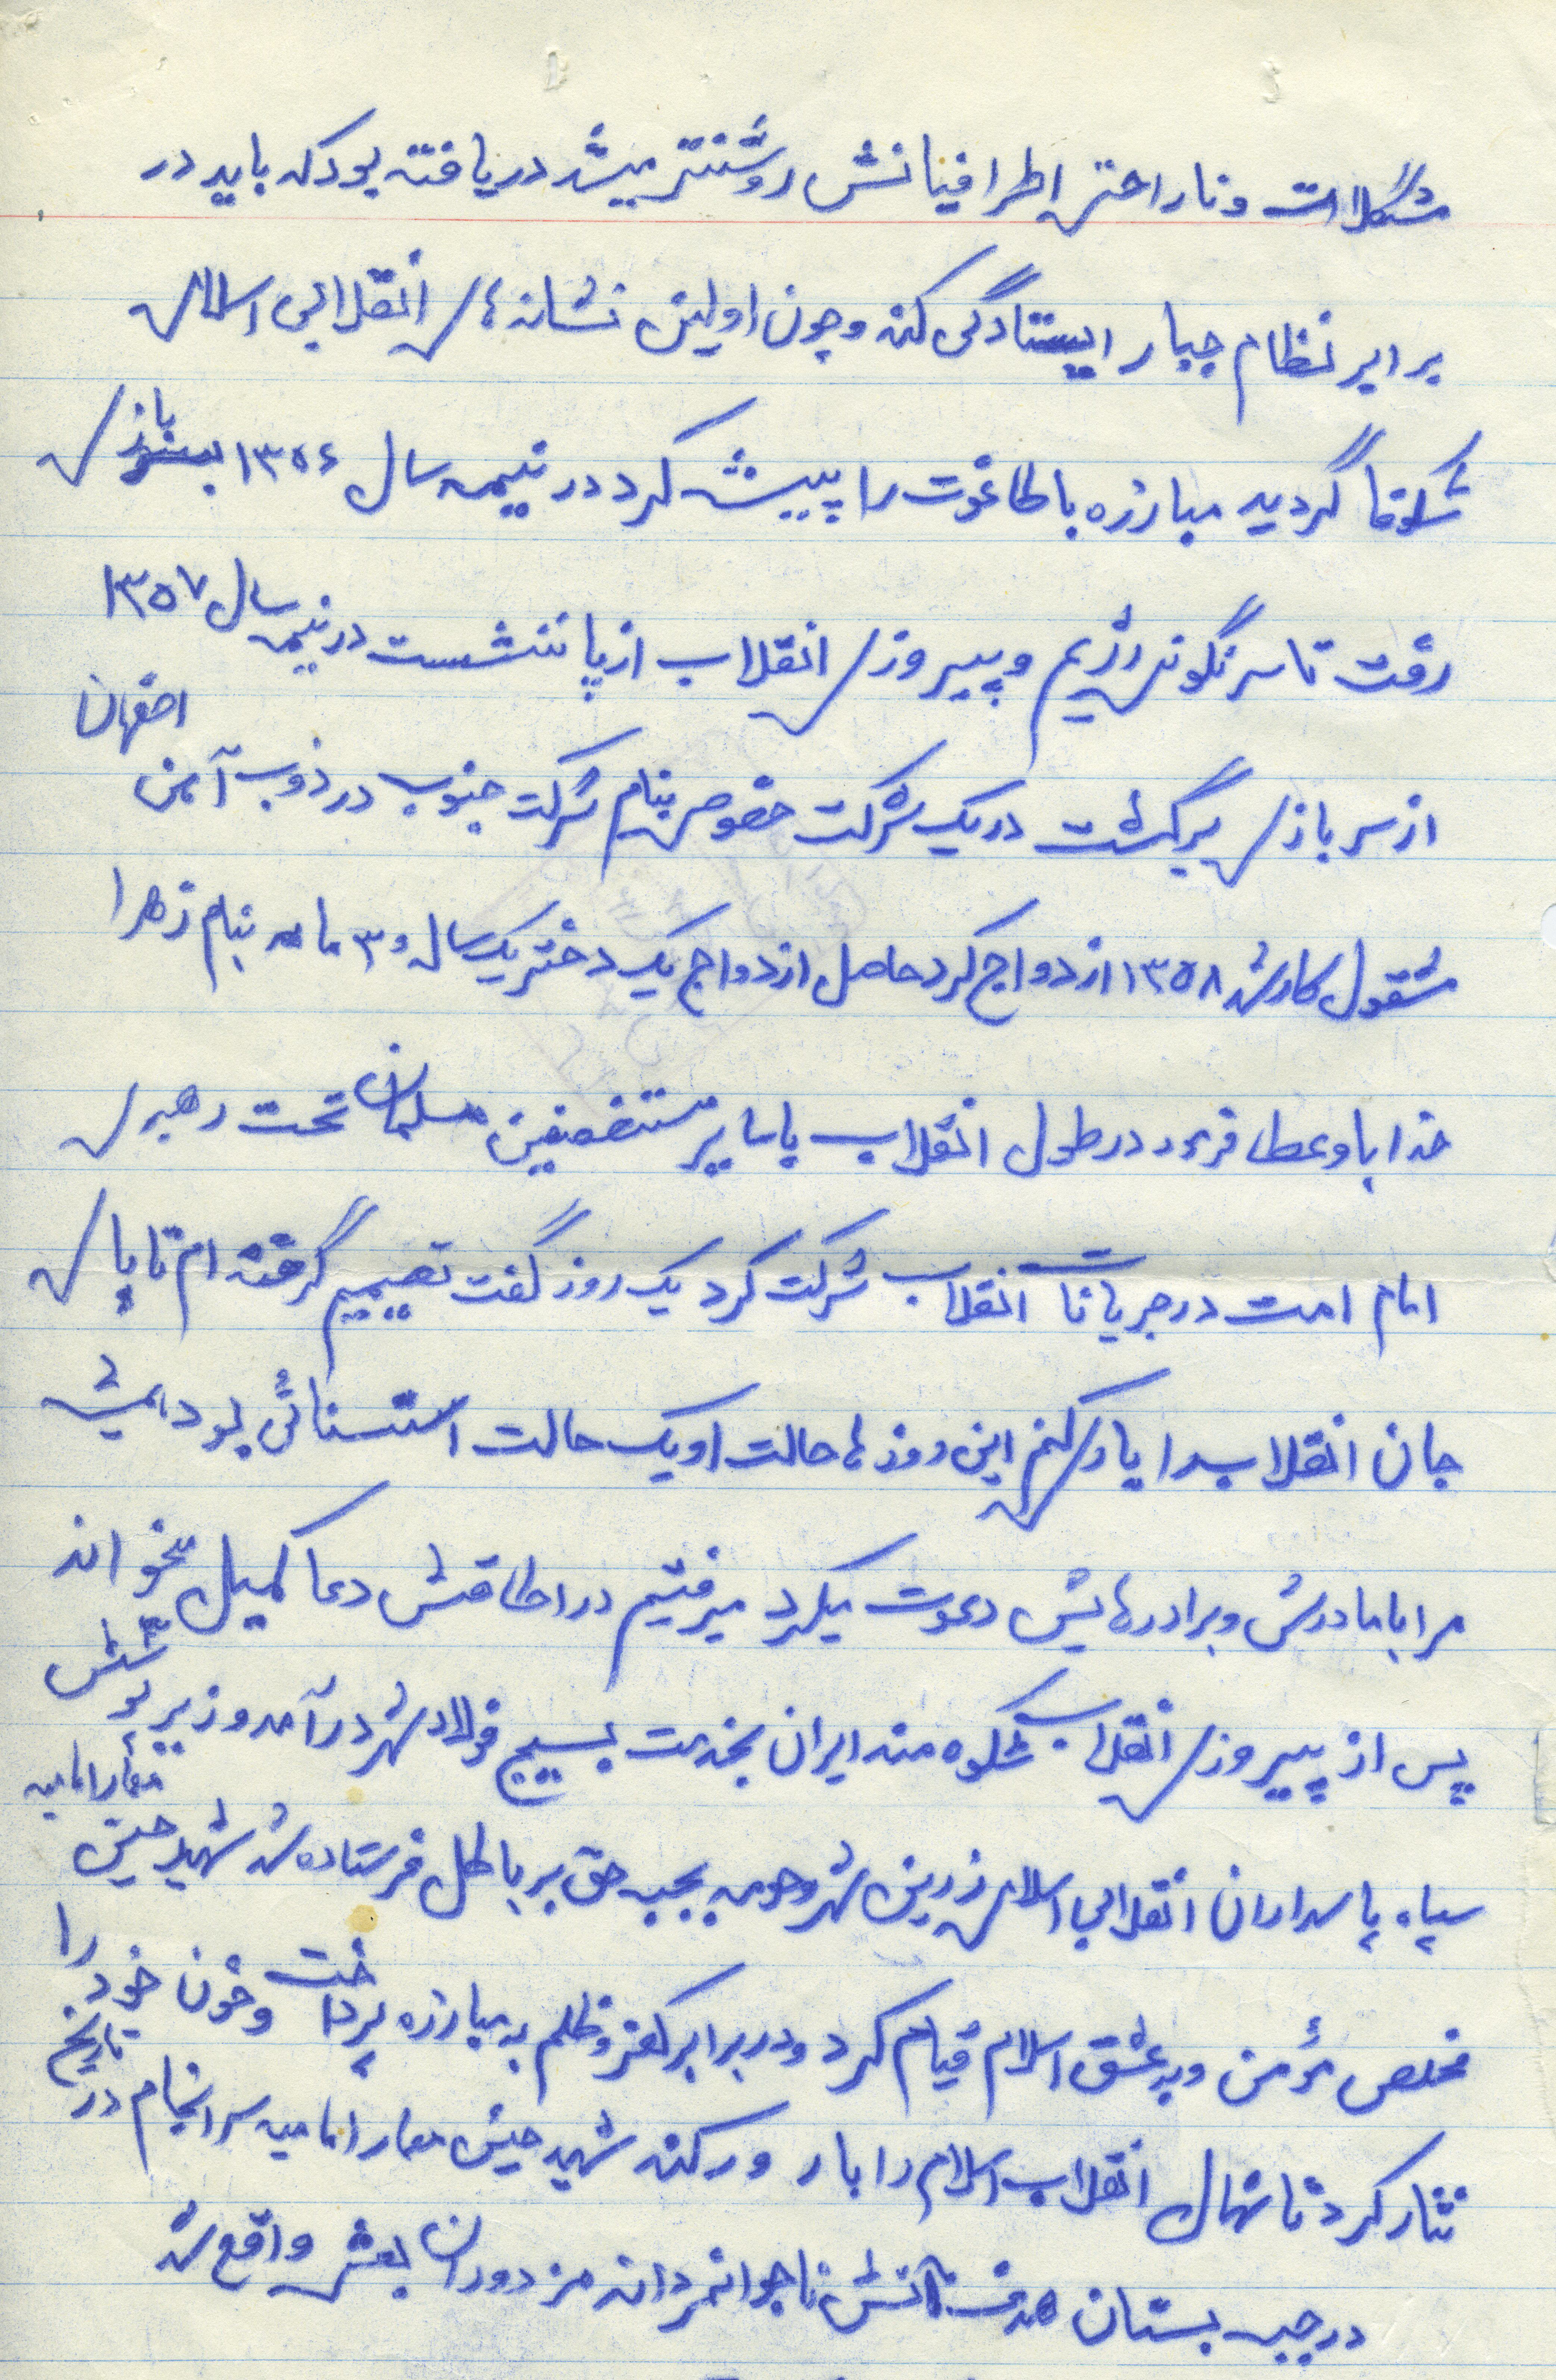 مشکلات و ناراحتی اطرافیانش روشنتر میشد دریافته بود که باید در
برابر نظام جبار ایستادگی کند و چون اولین نشانه های انقلابی اسلامی
شکوفا گردید مبارزه با طاغوت را پیشه کرد در نیمه سال ۱۳۵۶ بسربازی
رفت تا سرنگونی رژیم و پیروزی انقلاب از پا ننشست در نیمه سال ۱۳۵۷
از سربازی برگشت در یک شرکت خصوصی بنام شرکت جنوب در ذوب آهن اصفهان
مشغول کار شد ۱۳۵۸ ازدواج کرد حاصل ازدواج یک دختر یک سال و ۳ ماهه بنام زهرا
خدا باو عطا فرمود در طول انقلاب با سایر مستضعفین مسلمان تحت رهبری
امام امت در جریانات انقلاب شرکت کرد یک روز گفت تصمیم گرفته ام تا پای
جان انقلاب را یاری کنم این روزها حالت او یک حالت استسنائی بود همیشه
مرا با مادرش و برادرهایش دعوت میکرد میرفتیم در اطاقش دعا کمیل میخواند
پس از پیروزی انقلاب شکوه مند ایران بخدمت بسیج فولاد شهر درآمد و زیر پوشش
سپاه پاسداران انقلابی اسلامی زرین شهر و حومه بجبهه حق بر باطل فرستاده شد شهید حسین معمار امامیه
مخلص مؤمن و به عشق اسلام قیام کرد و در برابر کفر و ظلم به مبارزه پرداخت و خون خود را
نثار کرد تا نهال انقلاب اسلام را بارور کند شهید حسین معمار امامیه سرانجام در تاریخ
در جبهه بستان هدف آتش ناجوانمردانه مزدوران بعثی واقع شد